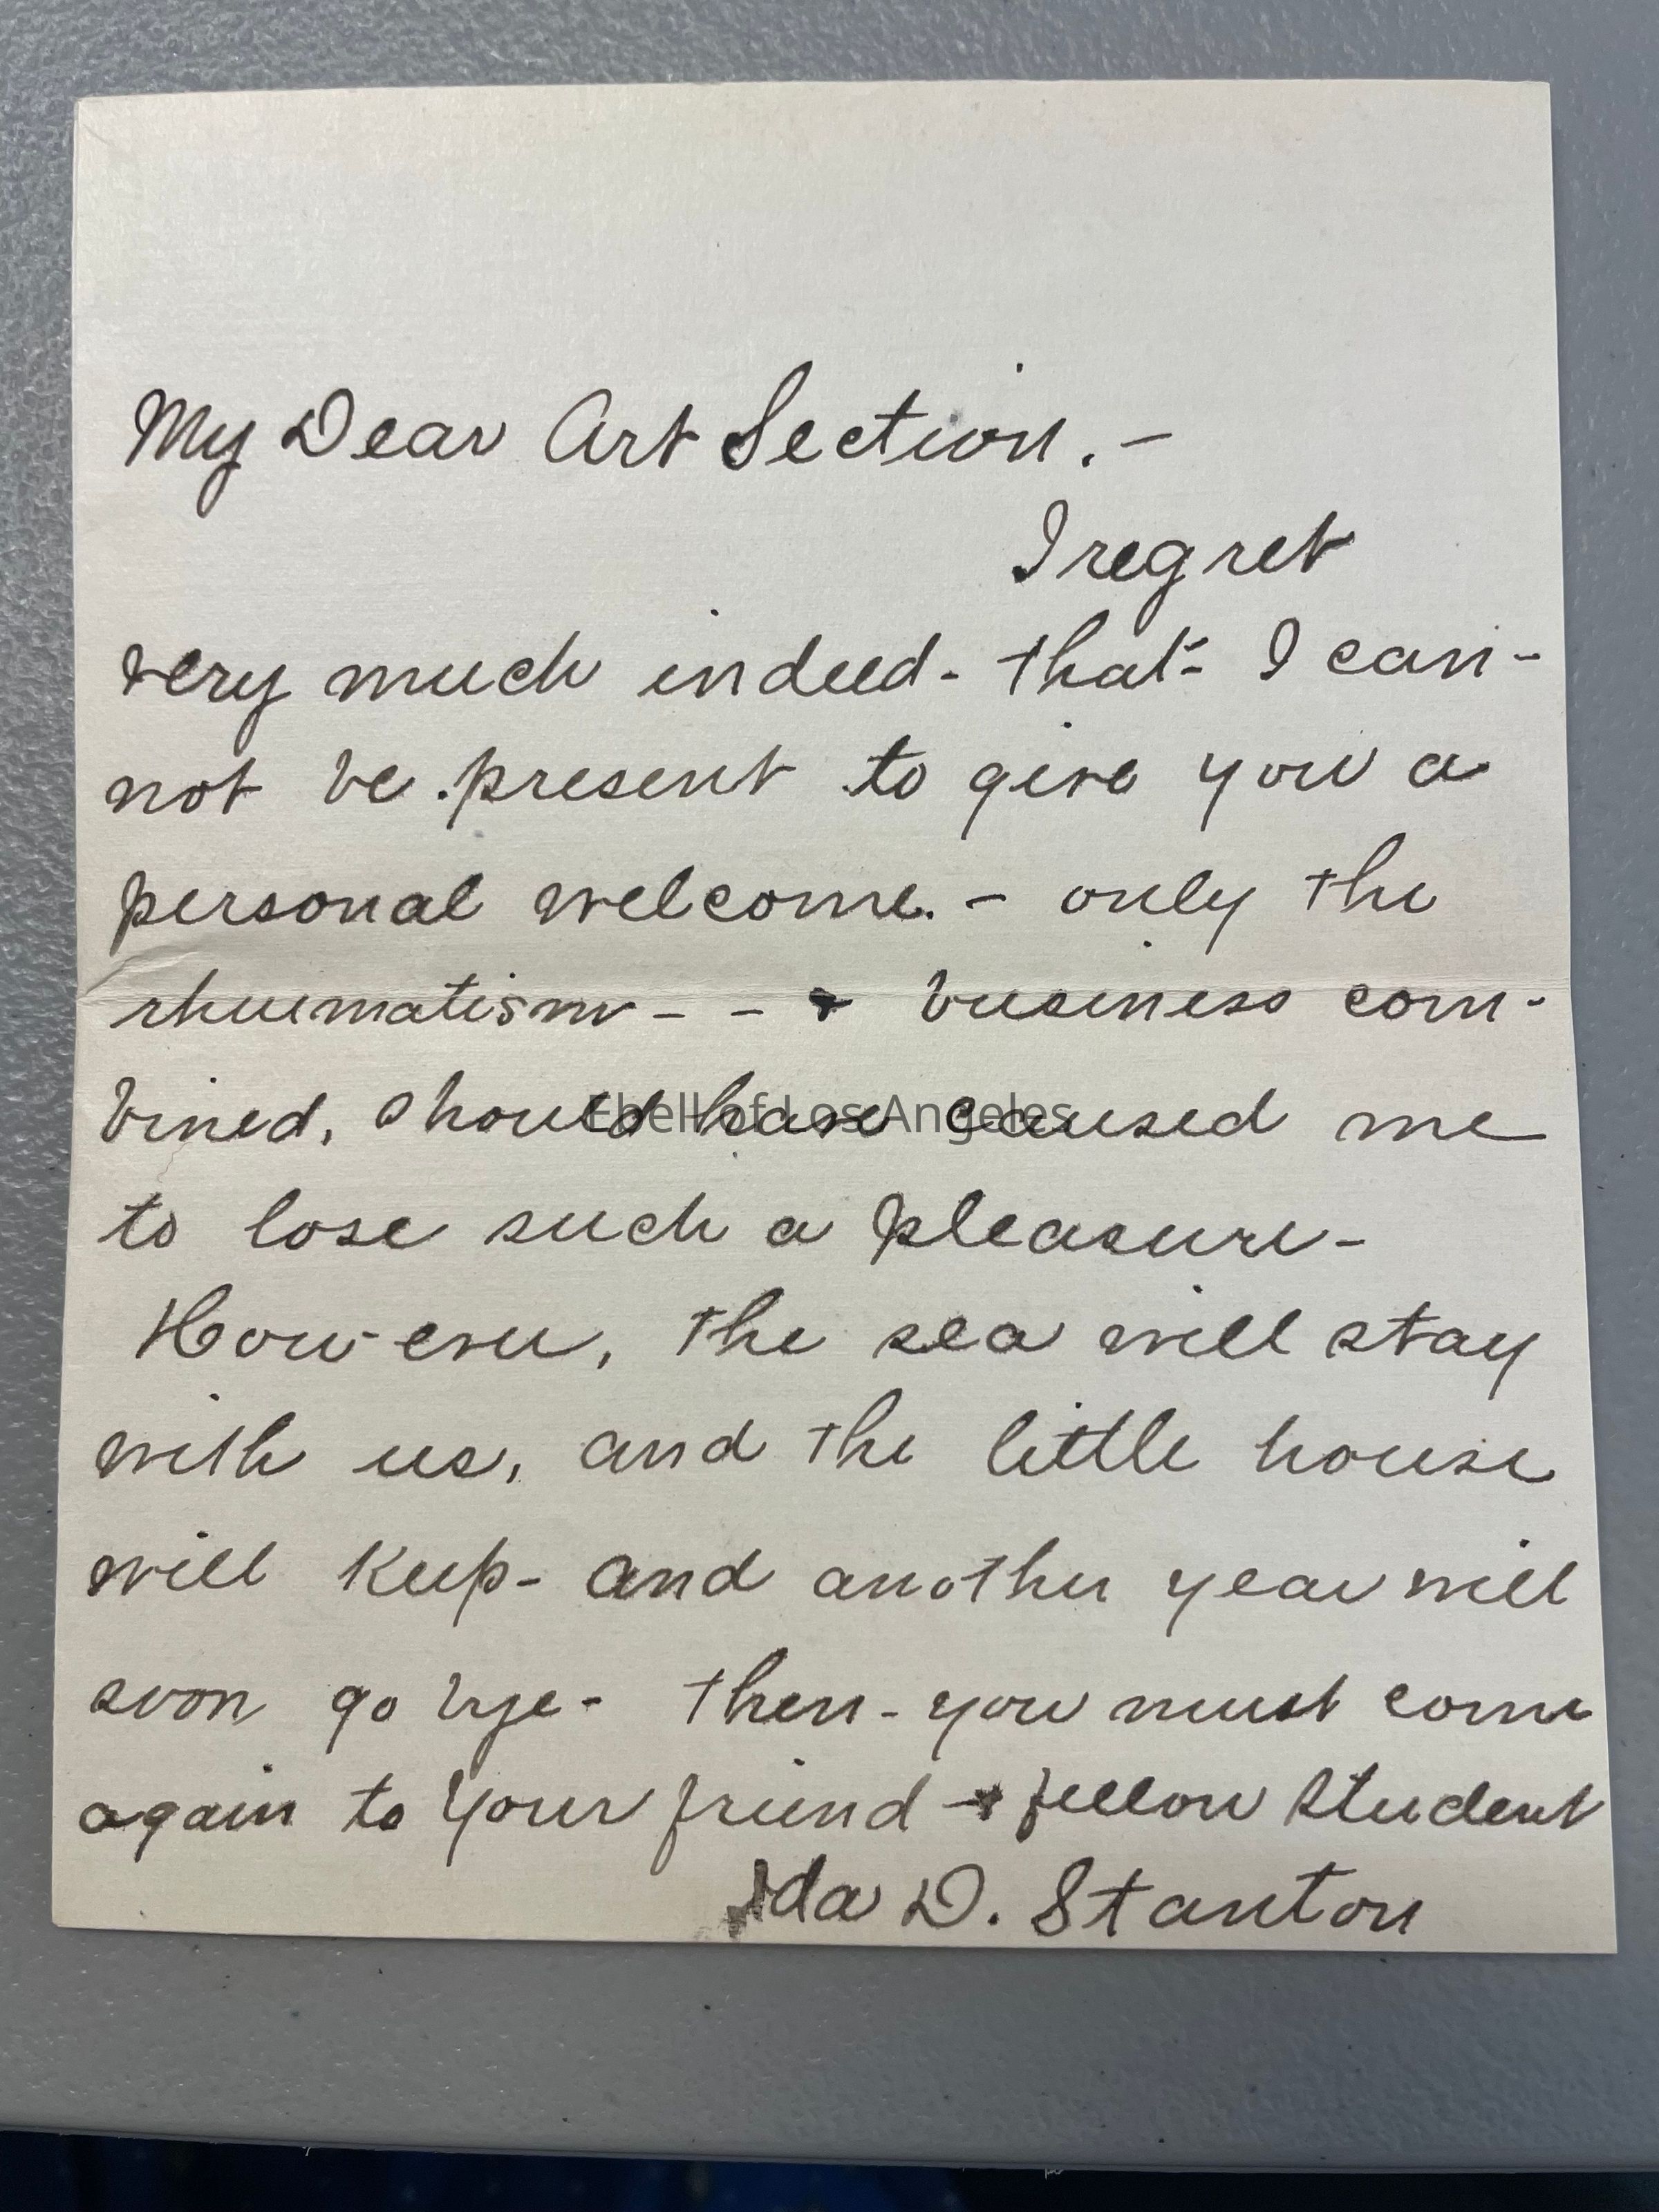 My Dear Art Section. -
I regret
very much indeed - that - I can-
not be present to give you a
personal welcome. - only the
rheumatism - - & business com-
bined, should have caused me
to lose such a pleasure -
How-ever, the sea will stay
with us, and the little house
will keep - and another year will
soon go bye - then - you must come
again to your friend & fellow student
Ida D. Stanton
Ebell of Los Angeles